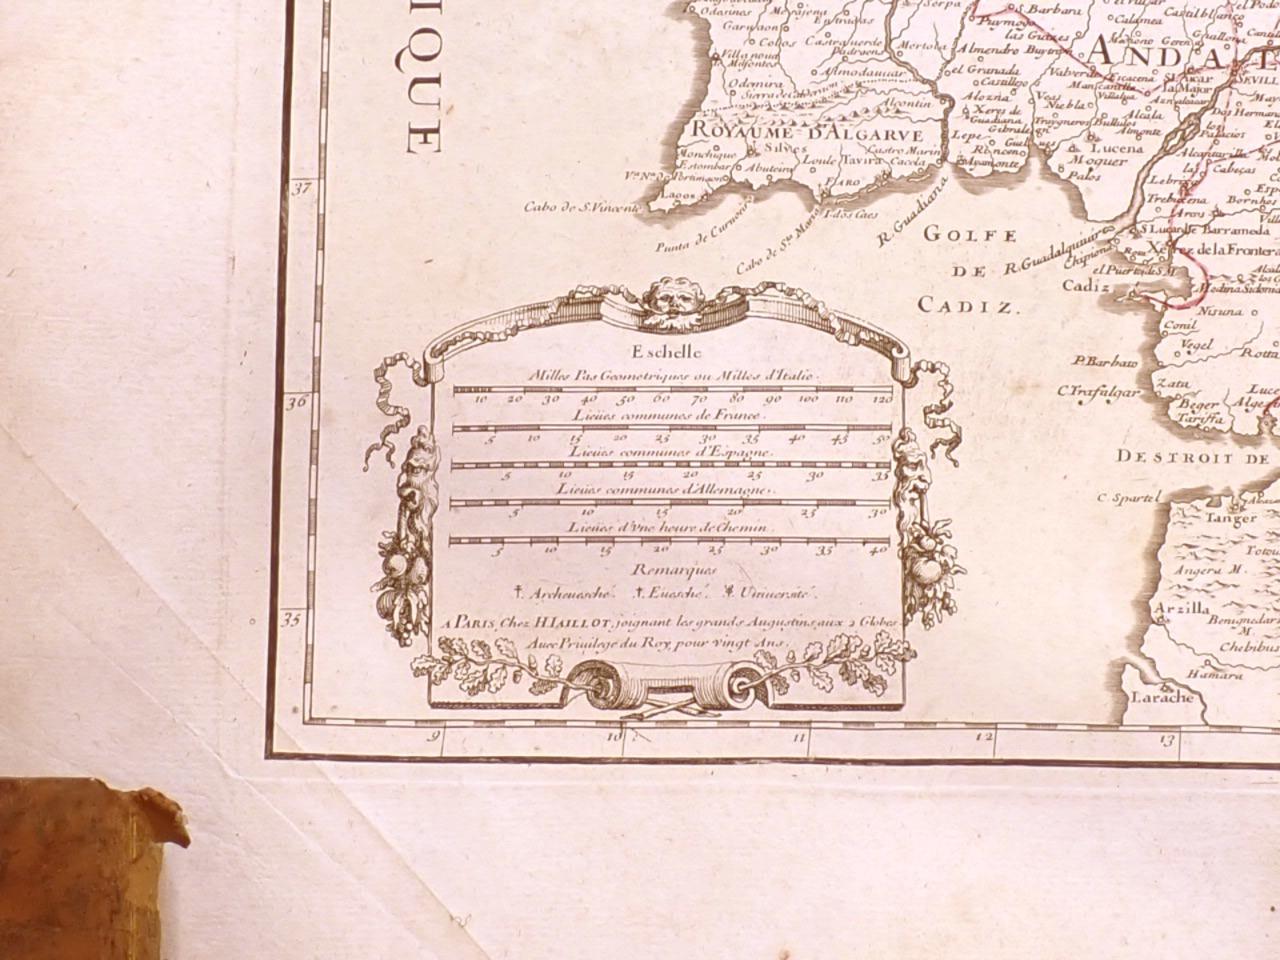 IQUE
Odesines
Garvaon
Messejena
Entradas
Serpa
S. Barbara
Puymogo
las Guizes
Calamea
Castilblanco
Colos
Castraverde
Mertola
Almendro
Villanova
Milfontes
Almodauuar
el Granada
Castilleo
Valverde
Escacena
Manzanilla
ANDAL
SEVILL
Odemira
Alcontin
Alozna
Niebla
Alcala
Almonte
ROYAUME D'ALGARVE
Silves
Monchique
Estombar
Loule
Tavira
Castro Marin
Cacela
Lepe
Gibraleon
Ayamonte
Lucena
Moguer
Palos
Lagos
FARO
Alcantarilla
Lebrixa
Trebuxena
Cabeças
Arcos
Bornhos
37
Cabo de S. Vincente
Punta de Carnero
Cabo de Sta. Maria
R. Guadiana
R. Guadalquiuir
Chipiona
S. Lucar de Barrameda
Xerez de la Frontera
el Puerto de S.M.
Medina Sidonia
Cadiz
GOLFE
DE
CADIZ.
Nisuna
Conil
Vegel
P. Barbato
Rotta
C. Trafalgar
Zata
Beger
Tariffa
36
DESTROIT DE
C. Spartel
Tanger
Angera M.
Arzilla
Benignedar
M.
Chebibus
Hamara
Larache
35
Eschelle
Milles Pas Geometriques ou Milles d'Italie.
10 20 30 40 50 60 70 80 90 100 110 120
Lieües communes de France.
5 10 15 20 25 30 35 40 45 50
Lieües communes d'Espagne.
5 10 15 20 25 30 35
Lieües communes d'Allemagne.
5 10 15 20 25 30
Lieües d'vne heure de Chemin.
5 10 15 20 25 30 35 40
Remarques
Archeuesché. Euesché. Uniuersité.
A PARIS, Chez H IAILLOT, joignant les grands Augustins, aux 2 Globes
Auec Priuilege du Roy, pour vingt Ans.
9 10 11 12 13